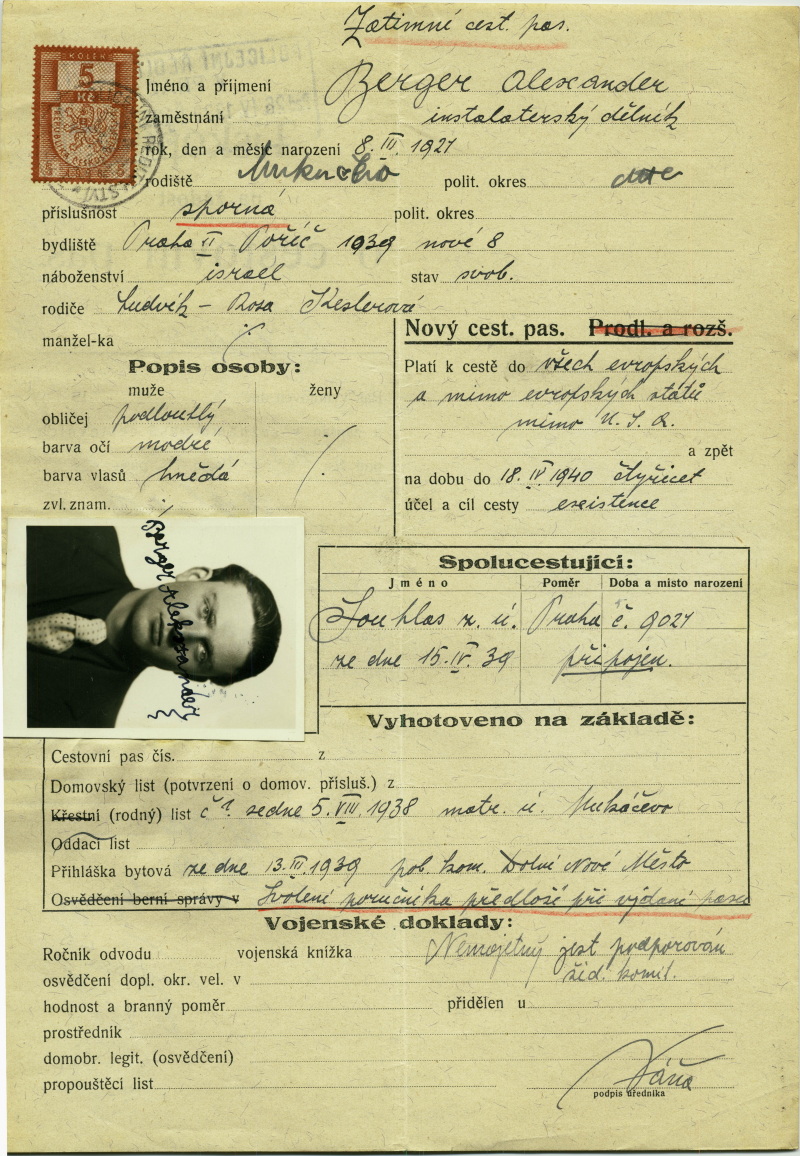 Zatímné cest. pas.
KOLEK
5
Kč
REPUBLIKA ČESKOSLOVENSKÁ
Jméno a příjmení Berger Alexander
zaměstnání instalaterský dělník
rok, den a měsíc narození 8. III. 1921
rodiště Mukačevo polit. okres dtto
příslušnost sporná polit. okres
bydliště Praha II Poříč 1939 nové 8
náboženství israel stav svob.
rodiče Ludvík – Rosa Keslerová
manžel-ka
Nový cest. pas. Prodl. a rozš.
Popis osoby:
muže ženy
obličej podlouhlý
barva očí modré
barva vlasů hnědá
zvl. znam.
Platí k cestě do všech evropských
a mimo evropských států
mimo U. S. A.
a zpět
na dobu do 18. IV 1940 čtyřicet
účel a cíl cesty existence
Berger Alexander
Spolucestující:
Jméno Poměr Doba a místo narození
Souhlas z. ú. Praha č. 9027
ze dne 15. IV. 39 připojen.
Vyhotoveno na základě:
Cestovní pas čís. z
Domovský list (potvrzení o domov. přísluš.) z
Křestní (rodný) list č ze dne 5. VIII. 1938 matr. ú. Mukačevo
Oddací list
Přihláška bytová ze dne 13. III. 1939 pol. kom. Dolní Nové Město
Osvědčení berní správy v Svolení poručníka předloží při vydání pasu
Vojenské doklady:
Ročník odvodu vojenská knížka Nemajetný jest podporován
žid. komit.
osvědčení dopl. okr. vel. v
hodnost a branný poměr přidělen u
prostředník
domobr. legit. (osvědčení)
propouštěcí list
podpis úředníka